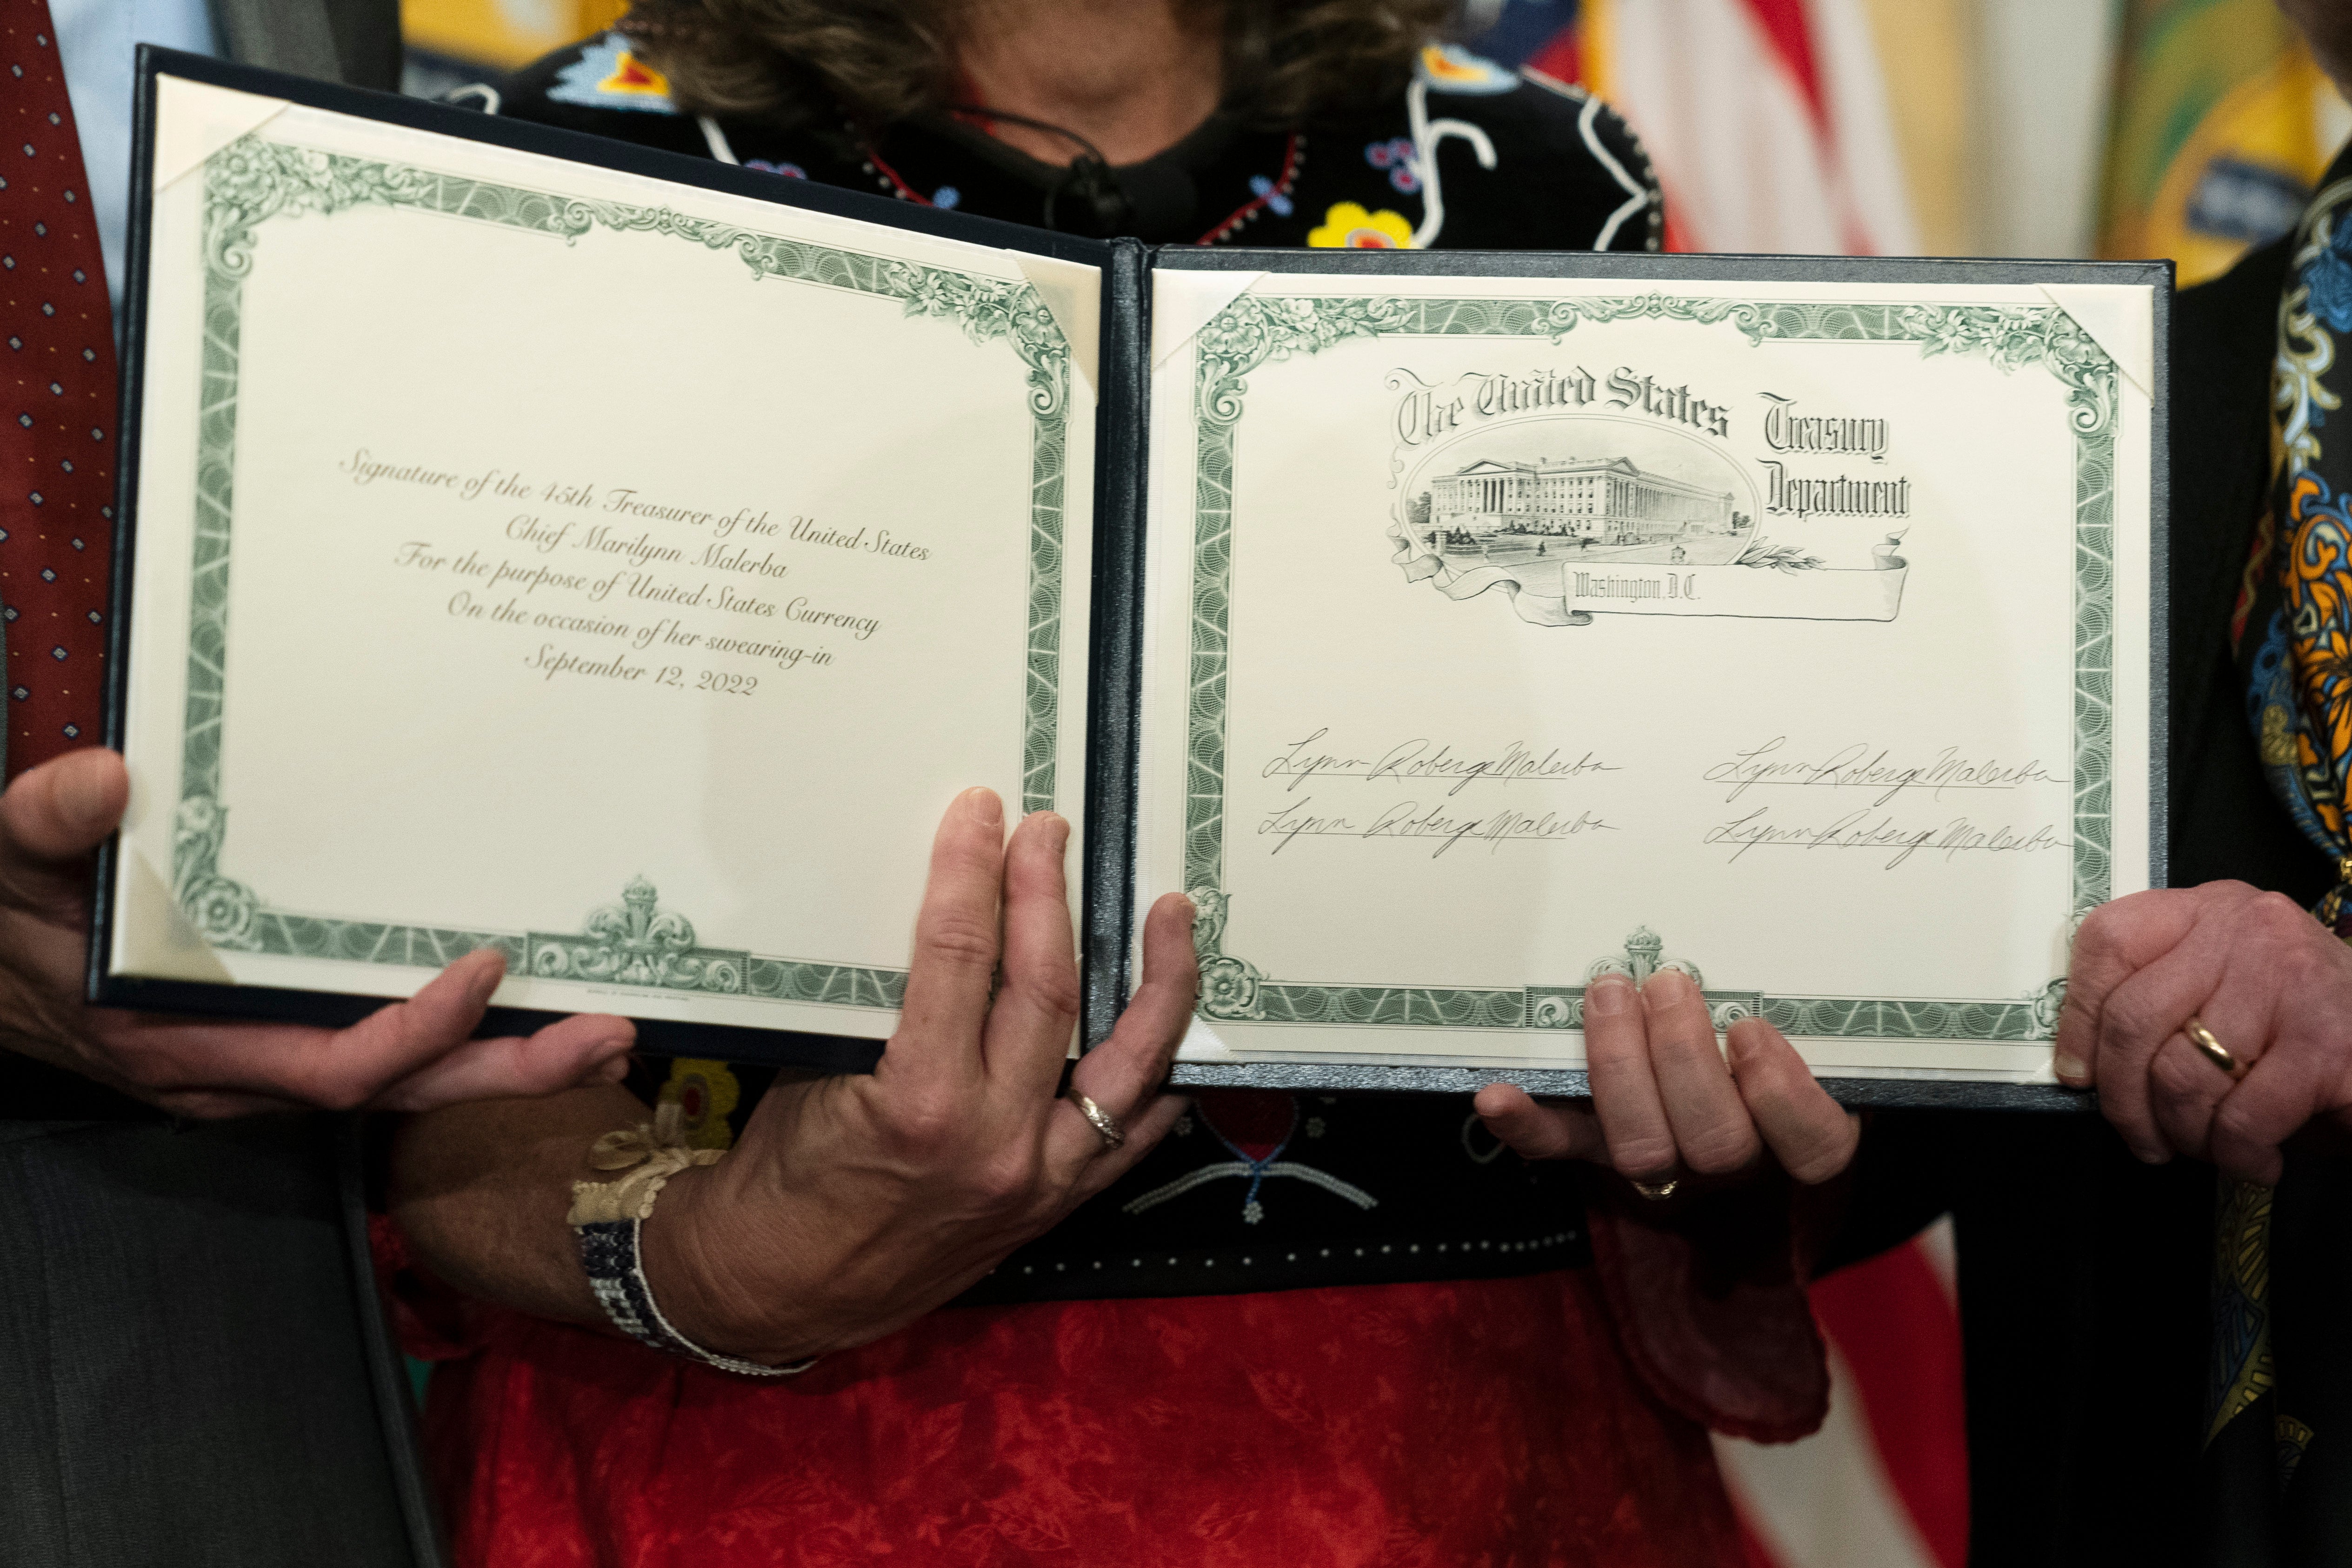 Signature of the 45th Treasurer of the United States
Chief Marilynn Malerba
For the purpose of United States Currency
On the occasion of her swearing-in
September 12, 2022
The United States Treasury
Department
Washington, D.C.
Lynn Roberge Malerba
Lynn Roberge Malerba
Lynn Roberge Malerba
Lynn Roberge Malerba